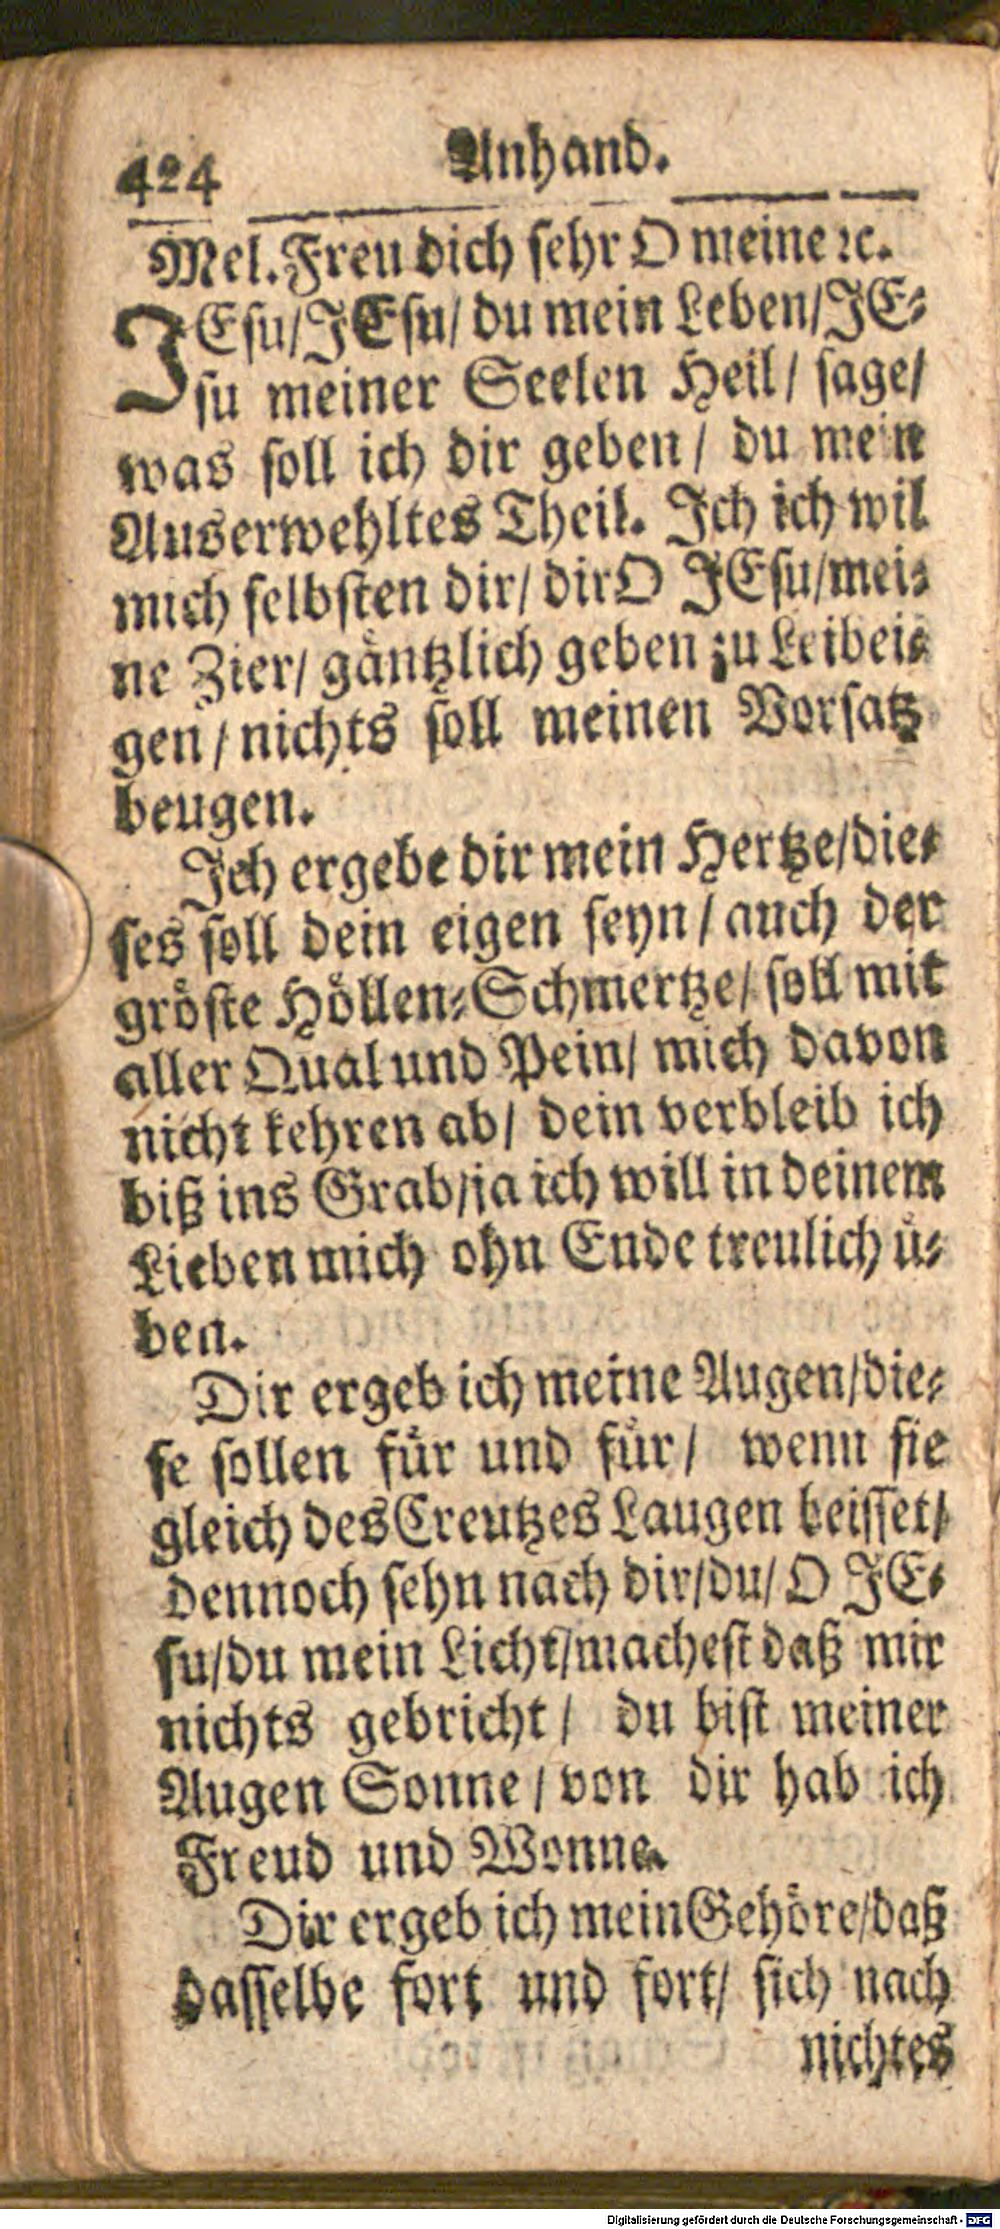 424 Anhand.
Mel. Freu dich sehr O meine ꝛc.
JEsu/JEsu/ du mein Leben/JE-
su meiner Seelen Heil/ sage/
was soll ich dir geben/ du mein
Auserwehltes Theil. Jch ich wil
mich selbsten dir/ dir O JEsu/mei-
ne Zier/ gäntzlich geben zu Leibei-
gen/nichts soll meinen Vorsatz
beugen.
Jch ergebe dir mein Hertze/die-
ses soll dein eigen seyn/auch der
gröste Höllen-Schmertze/ soll mit
aller Qual und Pein/ mich davon
nicht kehren ab/ dein verbleib ich
biß ins Grab/ja ich will in deinem
Lieben mich ohn Ende treulich ü-
ben.
Dir ergeb ich meine Augen/die-
se sollen für und für/ wenn sie
gleich des Creutzes Laugen beisset/
dennoch sehn nach dir/du/ O JE-
su/du mein Licht/machest daß mir
nichts gebricht/ du bist meiner
Augen Sonne/von dir hab ich
Freud und Wonne.
Dir ergeb ich mein Gehöre/daß
dasselbe fort und fort/ sich nach
nichtes
Digitalisierung gefördert durch die Deutsche Forschungsgemeinschaft - DFG